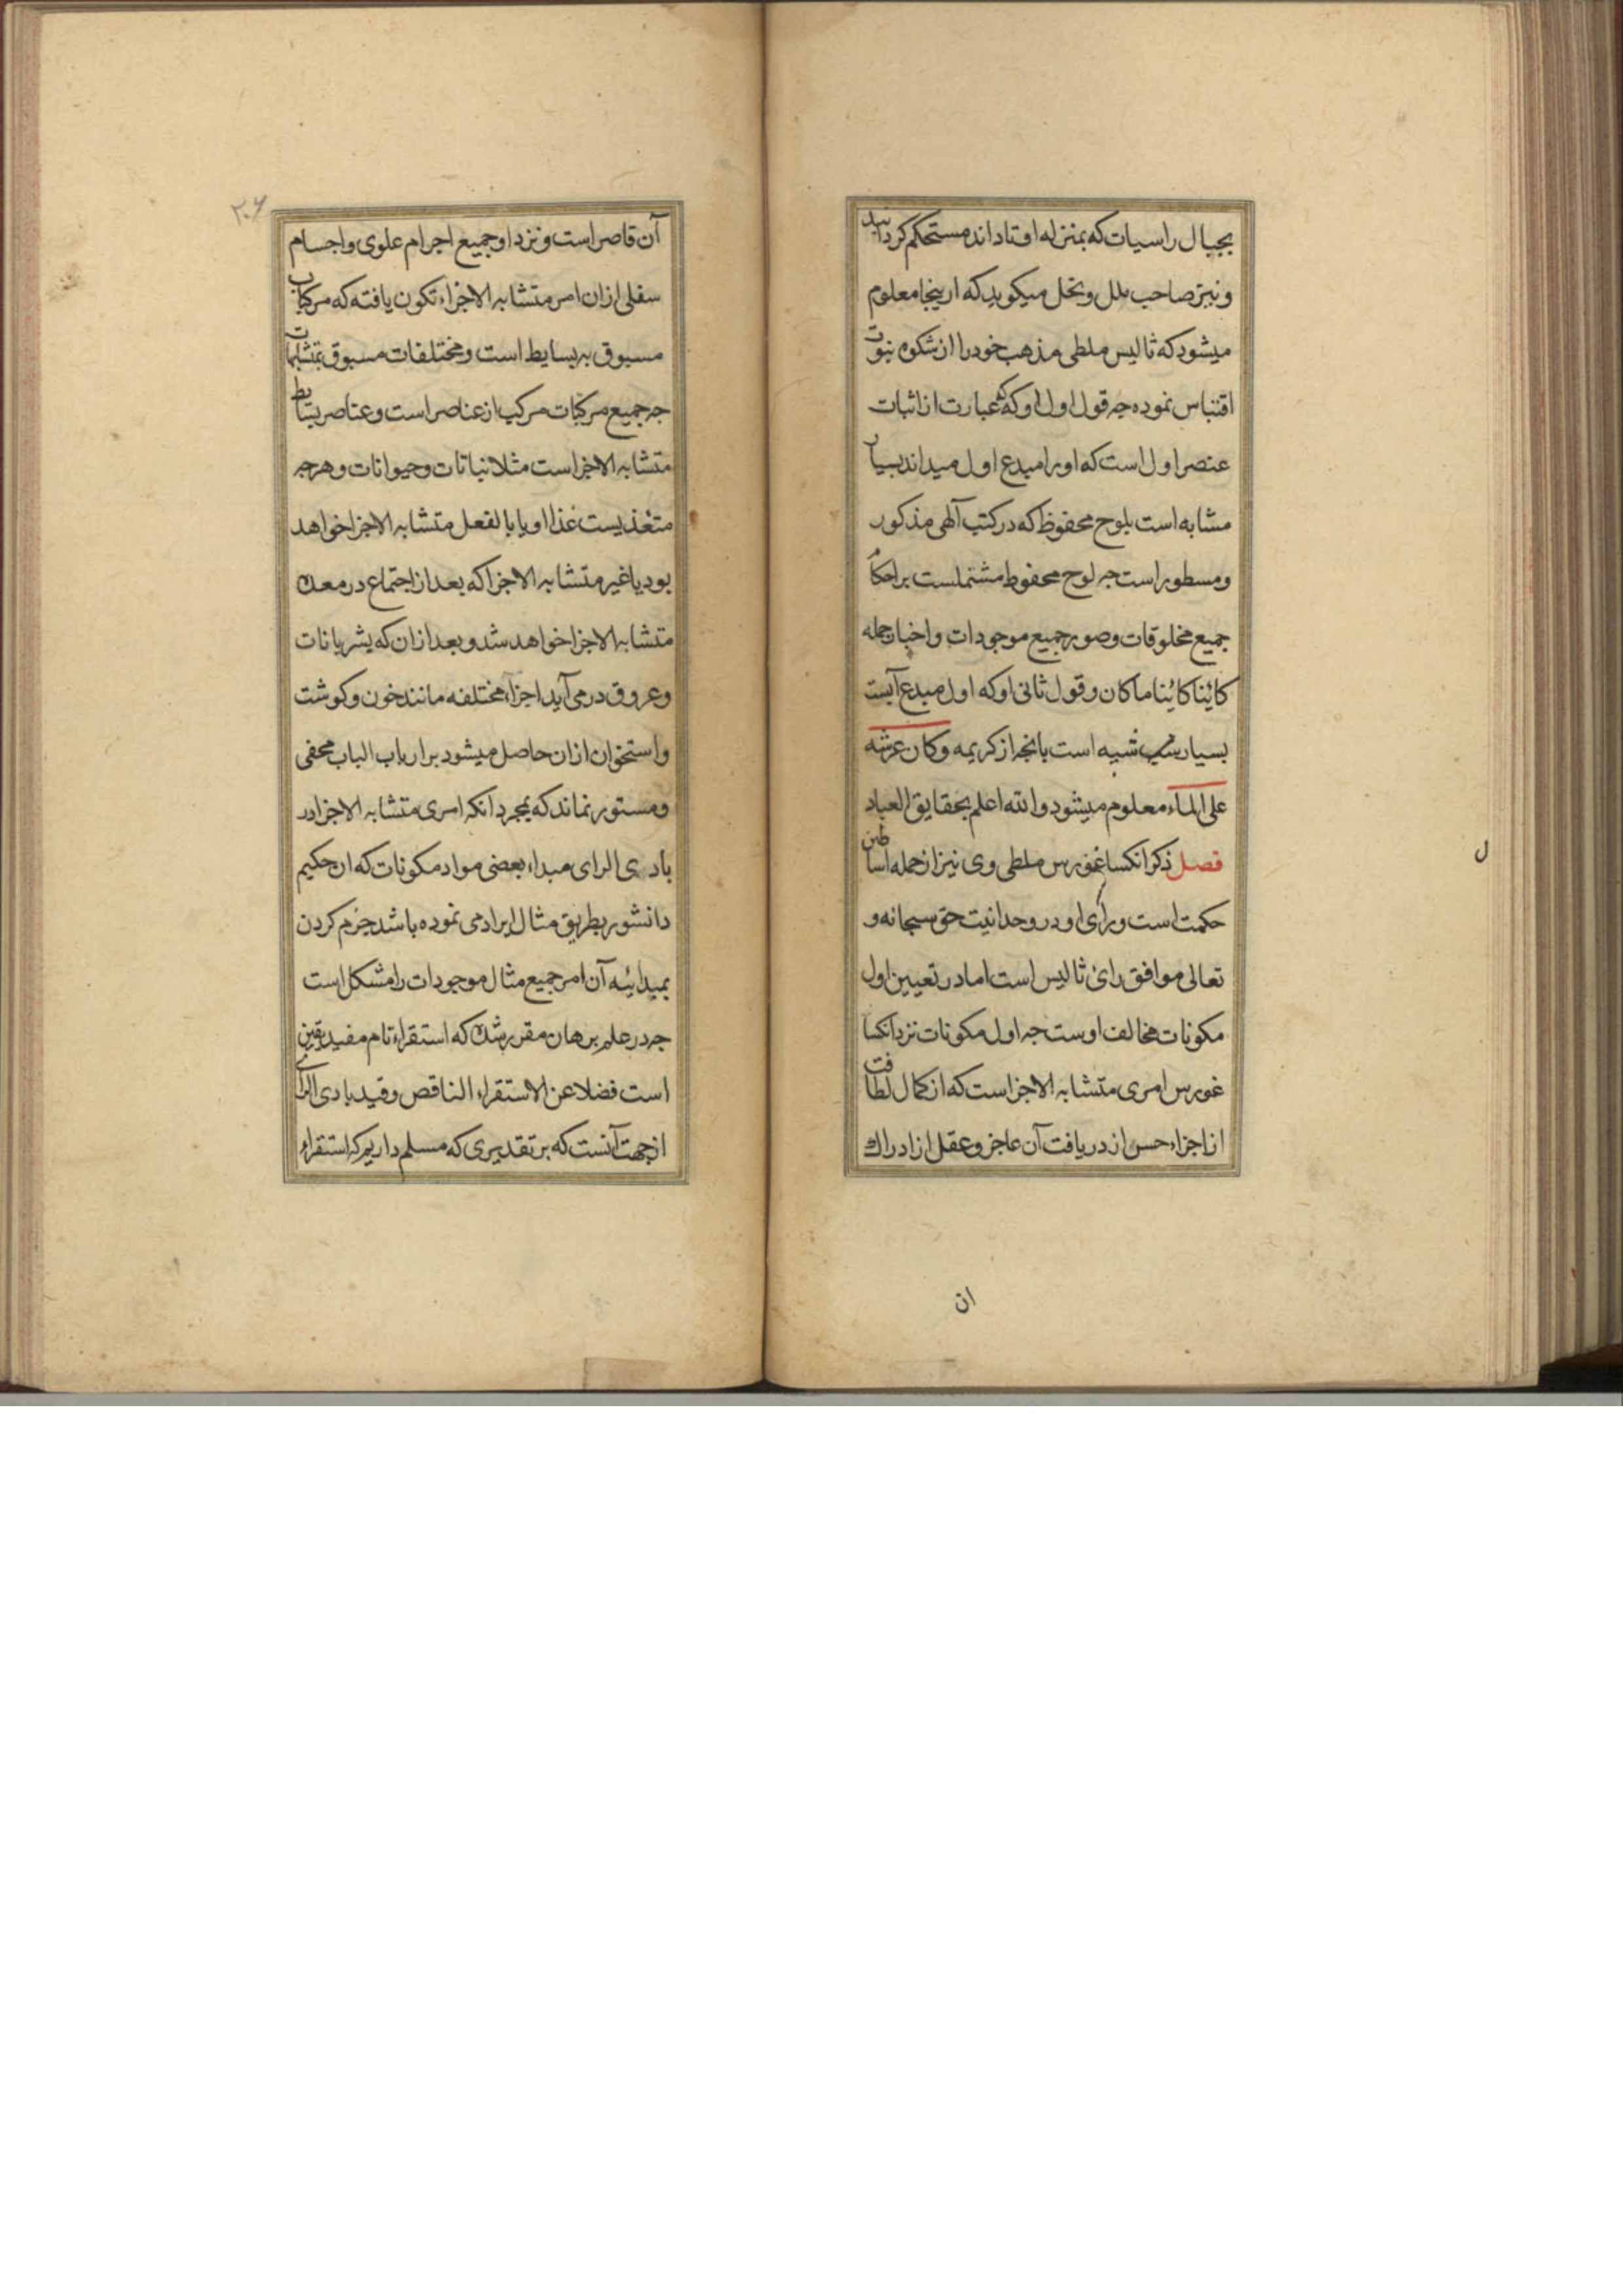 بجبال راسیات که بمنزله اوتاد اند مستحکم کردانید
و نیز صاحب ملل و نحل میکوید که ازینجا معلوم
میشود که ثالیس ملطی مذهب خود را از مشکوه نبوت
اقتباس نموده جه قول اول او که عبارت از اثبات
عنصر اول است که او را مبدع اول میداند بسیار
مشابه است بلوح محفوظ که در کتب آلهی مذکور
و مسطور است جه لوح محفوظ مشتملست بر احکام
جمیع مخلوقات و صور جمیع موجودات و اخبار جمله
کاینا کاینا ما کان و قول ثانی او که اول مبدع آبست
بسیار شبیه است بانجه از کریمه و کان عرشه
علی الماء معلوم میشود والله اعلم بحقایق العباد
فصل ذکر انکساغورس ملطی وی نیز از جمله اساطین
حکمت است و رای او در وحدانیت حق سبحانه و
تعالی موافق رائ ثالیس است اما در تعیین اول
مکونات مخالف اوست جه اول مکونات نزد انکسا
غورس امری متشابه الاجزاست که از کمال لطافت
ان اجزاء حس از دریافت آن عاجز و عقل از ادراک
ان
ل
۲۰۶
آن قاصر است و نزد او جمیع اجرام علوی و اجسام
سفلی ازان امر متشابه الاجزاء تکون یافته که مرکبات
مسبوق به بسایط است و مختلفات مسبوق بمتشابهات
جه جمیع مرکبات مرکب از عناصر است و عناصر بسایط
متشابه الاجزاست مثلا نباتات و حیوانات و هرجه
متغذیست غذا او یا بالفعل متشابه الاجزا خواهد
بود یا غیر متشابه الاجزا که بعد از اجتماع در معده
متشابه الاجزا خواهد شد و بعد ازان که بشریانات
و عروق در می آید اجزاء مختلفه مانند خون و کوشت
و استخوان ازان حاصل میشود بر ارباب الباب مخفی
و مستور نماند که بمجرد انکه امری متشابه الاجزا در
بادی الرای مبداء بعضی مواد مکونات که ان حکیم
دانشور بطریق مثال ایراد می نموده باشد جزم کردن
بمبدائیه آن امر جمیع مثال موجودات را مشکل است
جه در علم برهان مقرر شده که استقراء تام مفید یقین
است فضلا عن الاستقراء الناقص و قید بادی الرای
از جهت آنست که بر تقدیری که مسلم داریم که استقراء